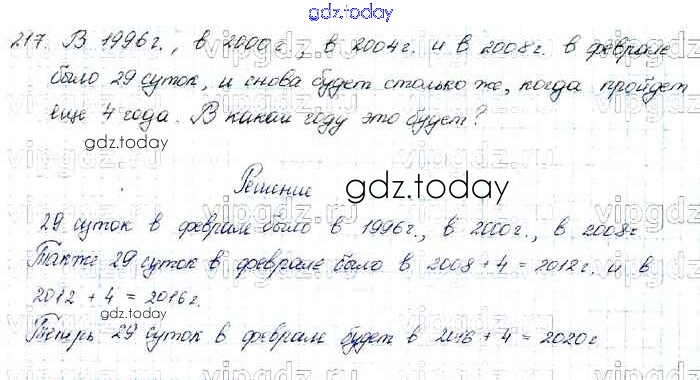 gdz.today
217. В 1996 г., в 2000 г., в 2004 г. и в 2008 г. в феврале
было 29 суток, и снова будет столько же, когда пройдет
еще 4 года. В каком году это будет?
gdz.today
Решение
gdz.today
29 суток в феврале было в 1996 г., в 2000 г., в 2008 г
Также 29 суток в феврале было в 2008 + 4 = 2012 г. и в
2012 + 4 = 2016 г.
gdz.today
Теперь 29 суток в феврале будет в 2016 + 4 = 2020 г